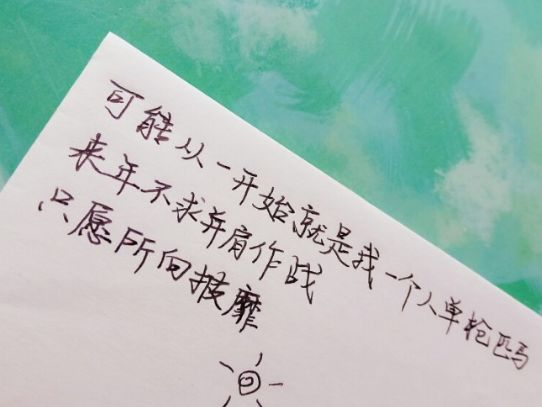 可能从一开始就是我一个人单枪匹马
来年不求并肩作战
只愿所向披靡